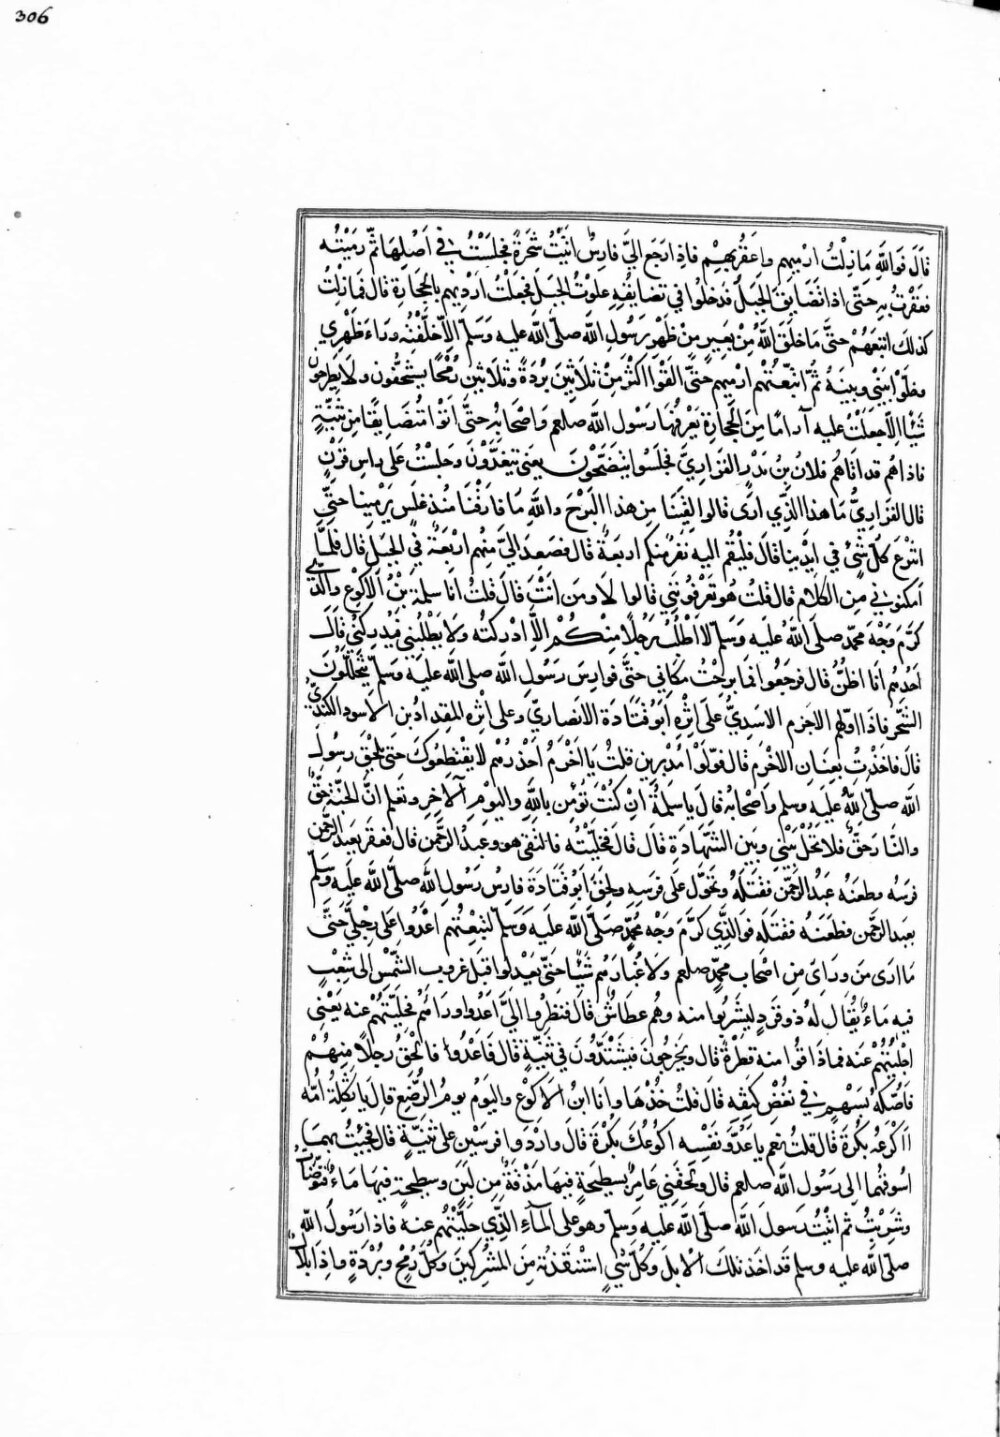 306
قَالَ فَوَاللّٰهِ مَا زِلْتُ اَرْمِيهِم وَاَعْقِرُ بِهِمْ فَاِذَا رَجَعَ اِلَيَّ فَارِسٌ اَتَيْتُ شَجَرَةً فَجَلَسْتُ في اَصْلِهَا ثمّ رَمَيْتُه
فعَقَرْتُ بِهِ حتّى اذا تَضَايَقَ الجبَلُ فَدَخَلُوا في تضايُقِهِ عَلَوْتُ الجبَلَ فجعَلْتُ اُرَدِّيهِم بالحِجَارَةِ قال فَمَا زِلْتُ
كذلك اتبعهُمْ حتّى مَا خلَقَ اللّٰهُ مِنْ بَعِيرٍ مِنْ ظَهْرِ رَسُولِ اللّٰه صلّى اللّٰه عليه وَسَلّم اِلّا خَلَّفْتُه ورَاءَ ظَهْرِي
وخلَّوْا بَيْني وبينَهُ ثمَّ اتّبَعْتُهُم ارْمِيهِم حتّى اَلْقَوْا اكْثَرَ مِنْ ثَلَاثِيْنَ بُرْدَةً وثَلَاثِيْن رُمْحًا يستخفُّون ولا يَطرحون
شَيْئًا اِلّا جَعَلْتُ عليه آرامًا مِنَ الحجَارَةِ يَعْرِفُهَا رَسُول اللّٰه صلعم وَاصْحَابُه حتّى اَتَوْا مُتَضايِقًا مِن ثَنِيَّةٍ
فاذا هُم قد اتَاهُم فلانُ بنُ بَدْرٍ الفَزارِيّ فَجَلَسُوا يَتَضَحَّوْنَ يعني يَتَغَدَّوْنَ وجَلَسْتُ على راسِ قَرْنٍ
قال الفَزارِيُّ مَا هذا الّذِي اَرَى قالوا لَقِينَا مِن هذا البَرْحَ واللّٰهِ مَا فارَقَنَا مُنْذ غلَس يَرْمِينا حتّى
انْتَزَعَ كلَّ شَيْءٍ في اَيْدِينا قالَ فَلْيَقُم اليه نفَرٌ منكم اربعةٌ قال فصَعِدَ اِليَّ مِنْهم اربَعَةٌ في الجبَلِ قال فَلَمَّا
اَمكنوني مِنَ الكَلَامِ قال قلتُ هَل تَعْرِفُونَني قالوا لا ومَن انْتَ قالَ قلتُ انَا سَلمة بْنُ الاَكْوَع والّذي
كَرَّمَ وَجْهَ محمّدٍ صلى اللّٰه عليه وَسَلّم لا اَطْلُبُ رَجُلًا مِنْكُمْ اِلَّا اَدْرَكْتُه ولا يَطْلُبُني فيُدركني قَالَ
اَحَدُهُم اَنَا اَظُنُّ قال فرَجَعُوا فمَا بَرِحْتُ مكَاني حتّى فوارس رَسُولِ اللّٰه صلى اللّٰه عليه وَسَلّم يتخلّلُونَ
الشَّجَر فَاِذَا اوّلهم الاخرم الاَسَدِيُّ على اِثْرِهِ اَبُو قَتَادَةَ الانصَارِيّ وعلى اِثْرِه المِقداد بن الاسود الكندي
قالَ فاَخَذْتُ بعِنَانِ الاخْرَم قال فَوَلَّوْا مُدْبرين قلتُ يا اَخْرَمُ احْذرْهُم لا يَقْتطِعُوكَ حتى يَلحق رَسول
اللّٰه صلّى اللّٰه عليه وسلم واصْحابه قال يا سَلمةُ اِنْ كُنْتَ تُؤْمِن باللّٰهِ واليَوْمِ الآخِرِ وتعلم انَّ الجنّة حقٌّ
والنّارَ حَقٌّ فلا تحُلْ بَيْنِي وبَيْن الشّهَادَةِ قال قال فخَلَّيْتُه فالتقى هو وعبدُ الرّحمن قال فعقَر بعبد الرّحمن
فرسَهُ وطعَنهُ عبدُ الرّحمن فقتَلهُ وتحَوَّل عَلى فرَسِهِ ولحِقَ اَبُو قتادَةَ فارِسُ رسُولِ اللّٰه صلّى اللّٰه عليه وسَلّم
بعبد الرّحمن فطعَنَهُ فقتله فوالَّذِي كَرَّمَ وَجْه محمّدٍ صَلّى اللّٰه عليه وَسَلّم لتبِعْتُهُم اَعْدُوا عَلى رِجْلَيَّ حَتّى
مَا ارَى مَن وَرَائ مِن اصْحاب محمّدٍ صلعم ولا غُبَارهُم شَيْئًا حتّى يَعْدِلوا قبل غروب الشَّمْس الى شِعْبٍ
فيه مَاءٌ يُقَالُ لَهُ ذو قَرَدٍ لِيَشْرَبُوا منه وهُم عِطَاشٌ قال فنظروا اليَّ اَعْدُوا ورَاءَهُم فحَلَّيْتُهُمْ عنه يَعْني
اَجْلَيْتُهُمْ عنه فما ذاقُوا منه قطْرَةً قال ويَخْرُجُونَ فيَشْتَدُّونَ في ثَنِيَّةٍ قال فَاَعْدُوا فاَلحَقُ رَجلًا مِنْهُمْ
فَاَصُكُّهُ بسَهْمٍ في نُغْضِ كَتِفِهِ قالَ قلتُ خُذْهَا وانَا ابْنُ الاَكْوَعِ واليَوْمُ يومُ الرُّضَّعِ قال يا ثَكِلَتْهُ اُمُّه
اَاَكْوَعُه بُكْرَةَ قال قلتُ نعَم يا عَدُوَّ نَفْسِه اَكْوَعُكَ بُكْرَةَ قال وارْدَوْا فرسَيْن على ثَنِيَّةٍ قال فجئْتُ بهما
اسُوقُهُما الى رَسُول اللّٰه صلعم قال ولحقَني عَامِرٌ بسطيحَةٍ فيهَا مَذْقَةٌ مِن لَبَنٍ وسطيحة فيها مَاءٌ فتوضّاتُ
وشَرِبْتُ ثم اتيْتُ رسولَ اللّٰه صلّى اللّٰه عليه وسَلّم وهو على المَآءِ الذي حَلَّيْتُهُم عنه فاذا رَسولُ اللّٰه
صلّى اللّٰه عليه وسلم قد اخَذ تلكَ الاِبلَ وكُلَّ شيْءٍ اسْتَنْقَذْتُه مِنَ المُشرِكينَ وَكُلَّ رُمْحٍ وبُرْدَةٍ واذا بلالٌ